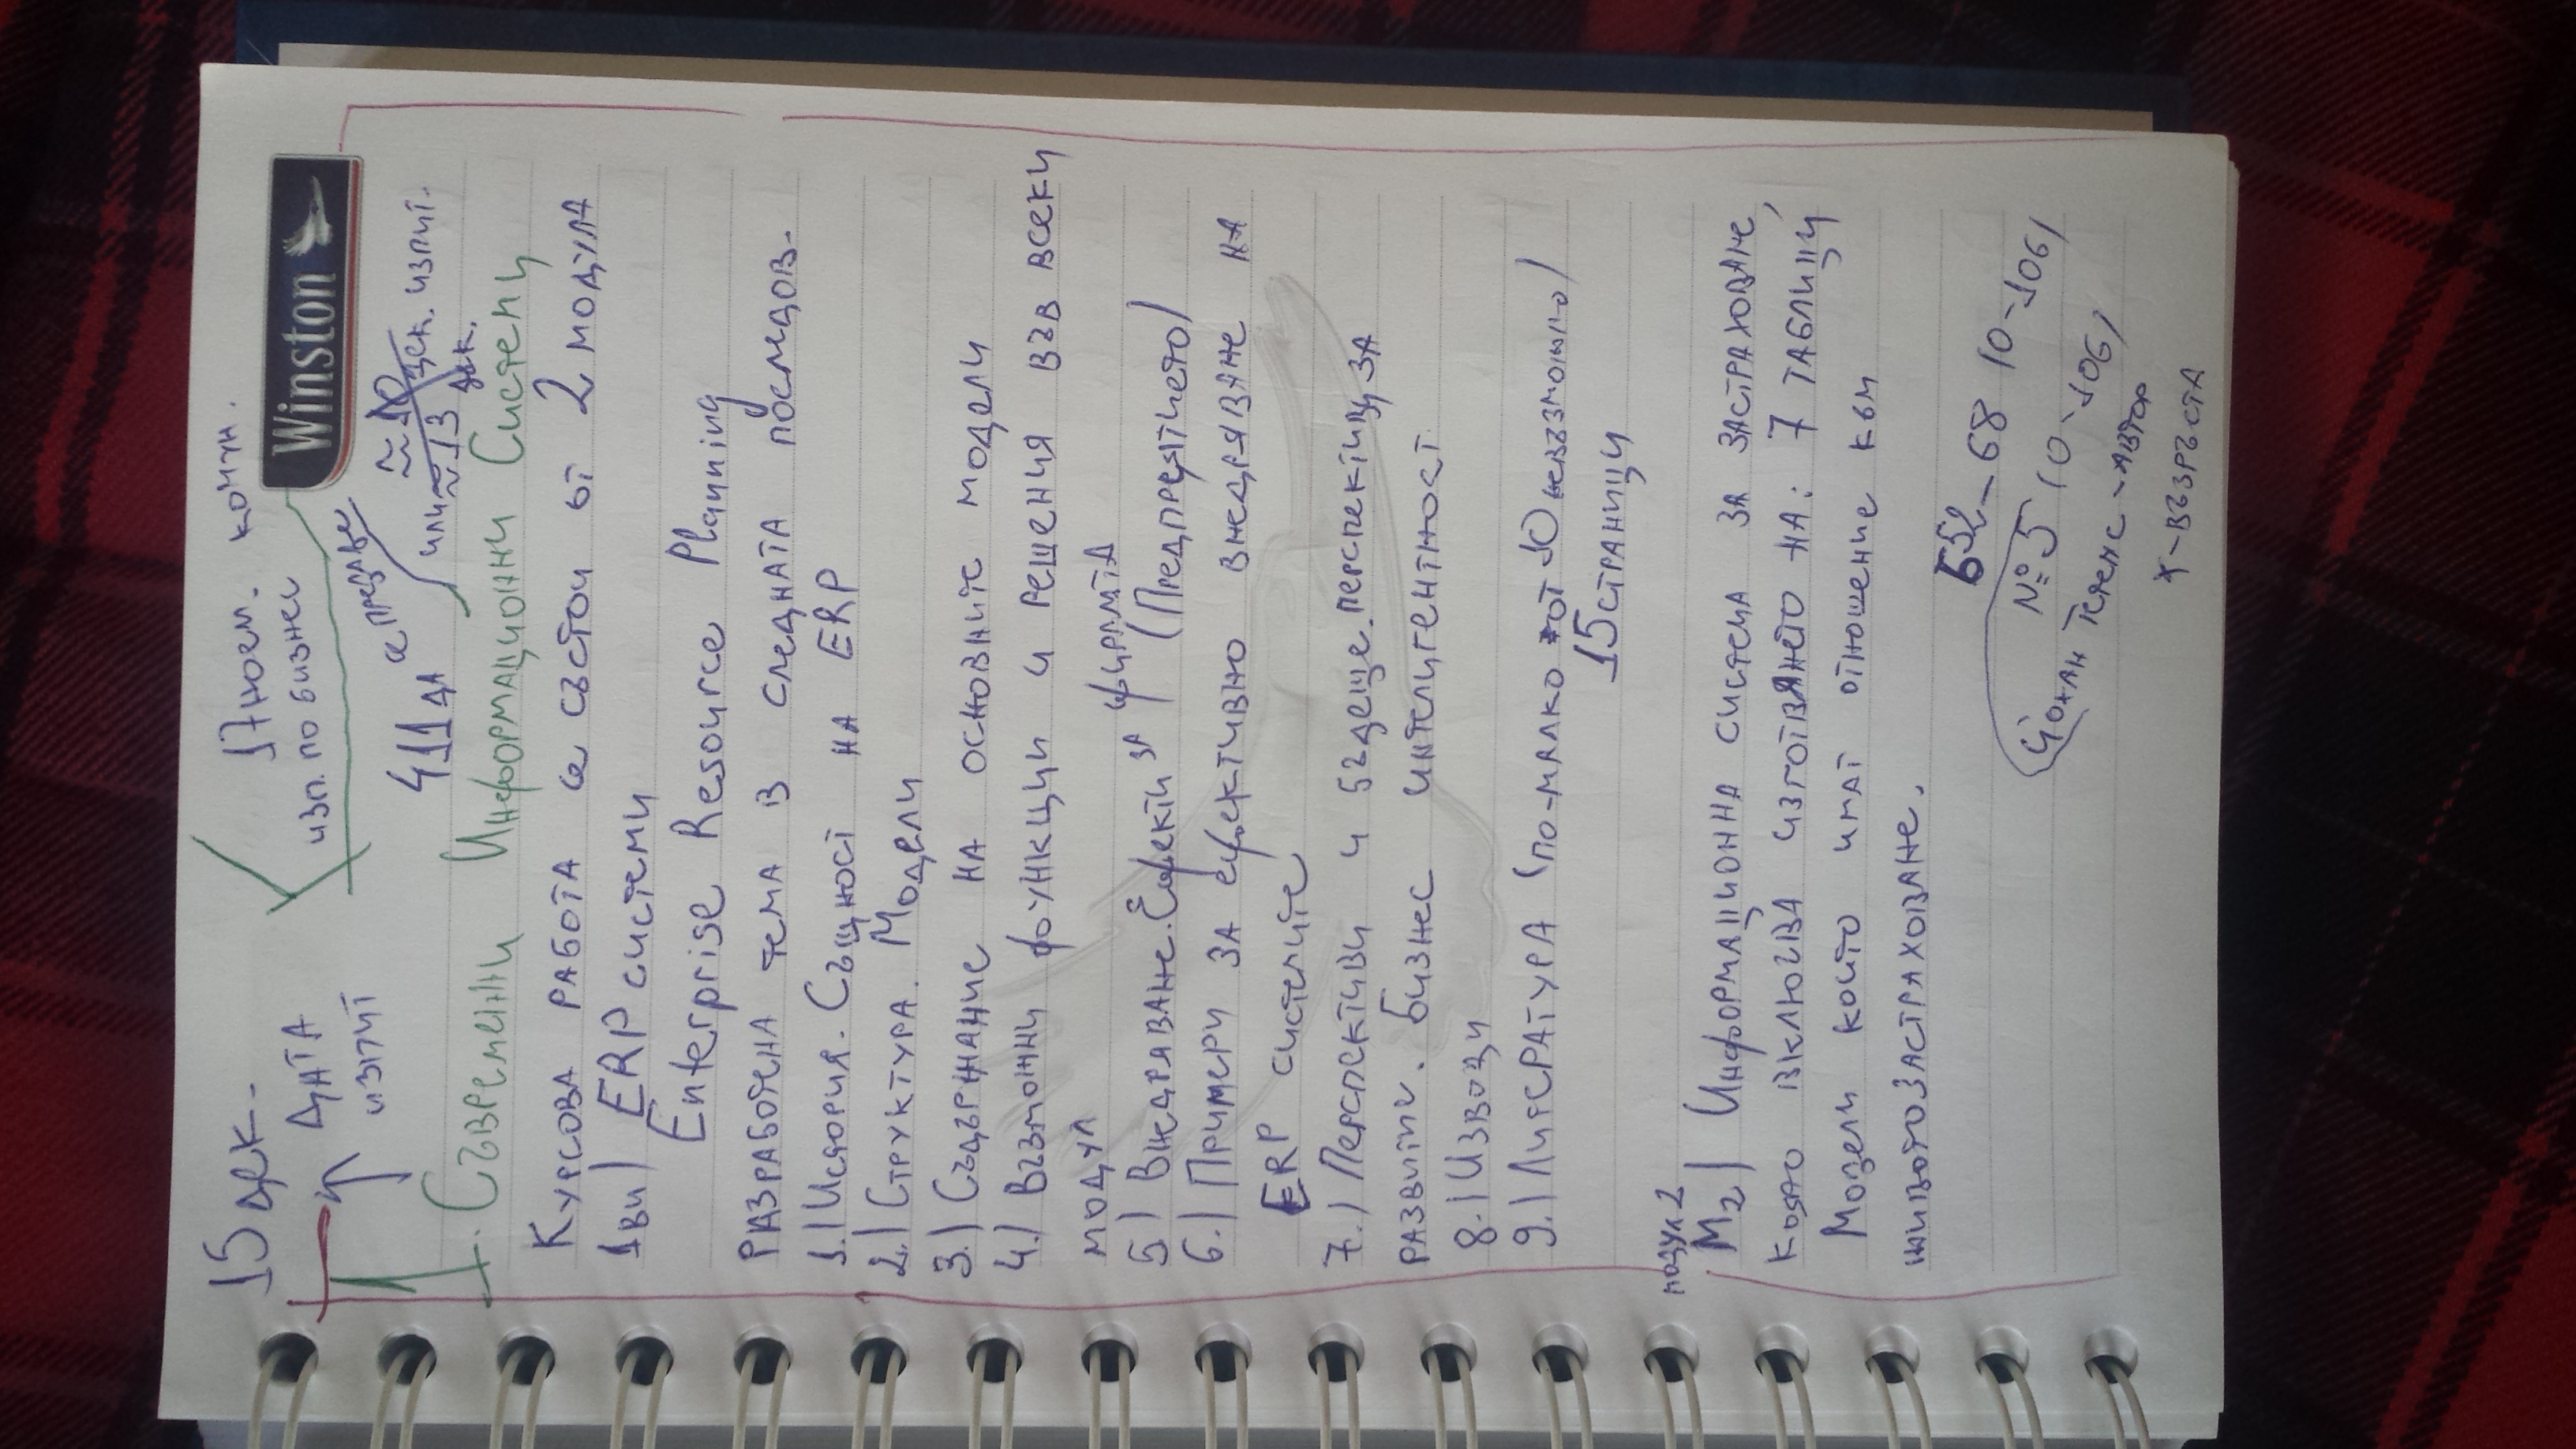 15 дек.
17 ноем. комун.
Winston
ДАТА
изпит
изп. по бизнес
411 да се предаде
≈ 10 дек. изпит.
или ≈ 13 дек.
1. Съвременни Информационни Системи
Курсова работа се състои от 2 модула
1ви) ERP системи
Enterprise Resource Planning
Разработена тема в следната последов.
1.) История. Същност на ERP
2.) Структура. Модели
3.) Съдържание на основните модели
4.) Възможни функции и решения във всеки
модул
5.) Внедряване. Ефекти за фирмата (Предприятието)
6.) Примери за ефективно внедряване на
ERP системите
7.) Перспективи и бъдеще. перспективи за
развитие. бизнес интелигентност
8.) Изводи
9.) Литература (по-малко от 10 невъзможно)
15 страници
модул 2
М2) Информационна система за застраховане,
която включва изготвянето на: 7 таблици
Модели които имат отношение към
животозастраховане.
БЗ2 - 68 10 лв/
№ 5 (10 лв/
Йохан - автор
х - възраста